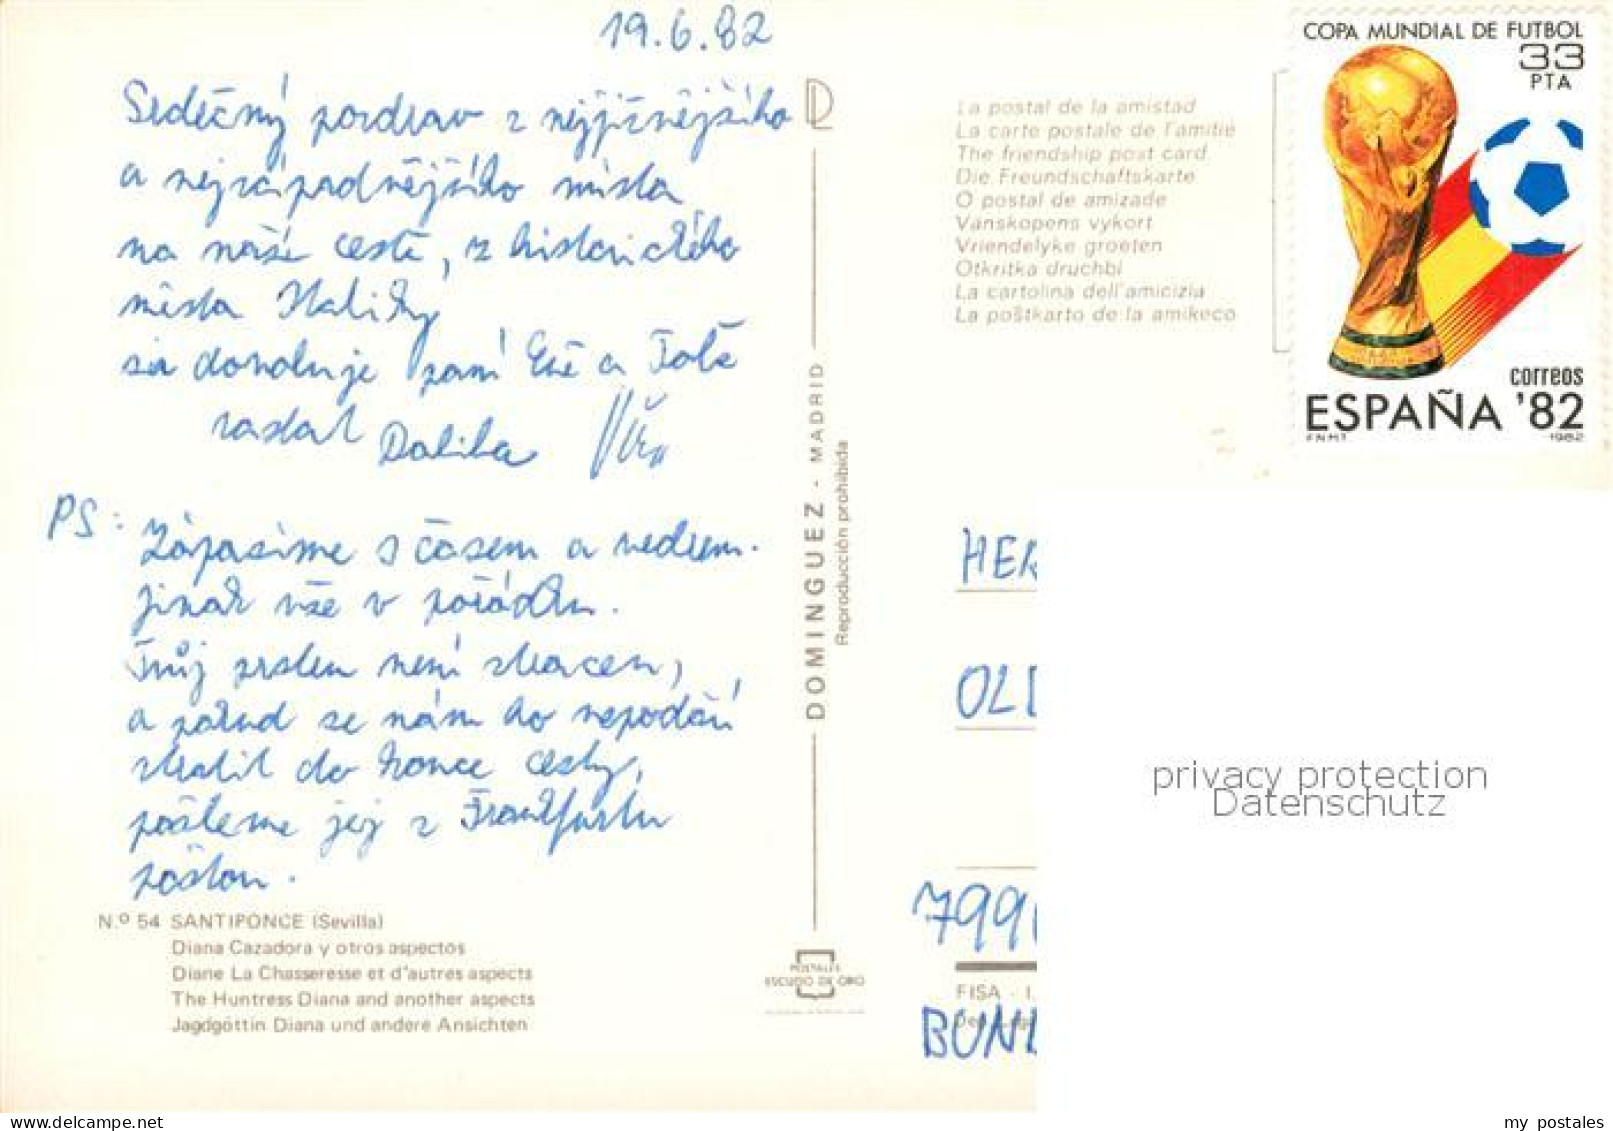 19.6.82
Srdečný pozdrav z nejjižnějšího
a nejzápadnějšího místa
na naší cestě, z historického
místa Italiky
si dovoluje paní Evě a Totě
zaslat Dalibor Věra
PS: Zápasíme s časem a vedrem.
jinak vše v pořádku.
Tvůj prsten není ztracen,
a pokud se nám ho nepodaří
ztratit do konce cesty,
pošleme jej z Frankfurtu
poštou.
N.º 54 SANTIPONCE (Sevilla)
Diana Cazadora y otros aspectos
Diane La Chasseresse et d'autres aspects
The Huntress Diana and another aspects
Jagdgöttin Diana und andere Ansichten
DOMINGUEZ - MADRID
Reproducción prohibida
POSTALES
ESCUDO DE ORO
La postal de la amistad
La carte postale de l'amitié
The friendship post card
Die Freundschaftskarte
O postal de amizade
Vänskopens vykort
Vriendelyke groeten
Otkritka druchbi
La cartolina dell'amicizia
La poŝtkarto de la amikeco
COPA MUNDIAL DE FUTBOL
33
PTA
correos
ESPAÑA '82
F.N.M.T. 1982
HER
OLD
799
FISA - I.
BUN
privacy protection
Datenschutz
www.delcampe.net
my_postales